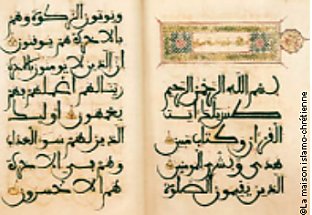 بسم الله الرحمن الرحيم
طس تلك ايت
القران وكتاب مبين
هدى وبشرى للمومنين
الذين يقيمون الصلوة
ويوتون الزكوة وهم
بالاخرة هم يوقنون
ان الذين لا يومنون بالاخرة
زينا لهم اعملهم فهم
يعمهون اوليك
الذين لهم سوء العذاب
وهم في الاخرة
هم الاخسرون
©La maison islamo-chrétienne